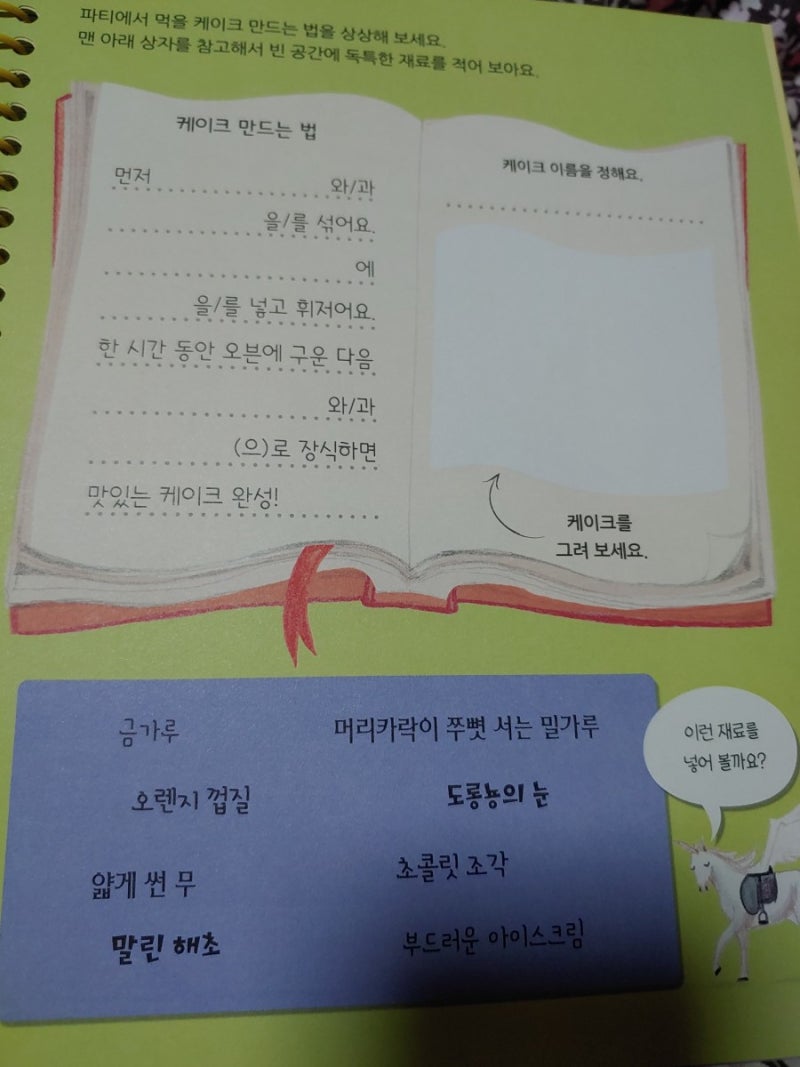 파티에서 먹을 케이크 만드는 법을 상상해 보세요.
맨 아래 상자를 참고해서 빈 공간에 독특한 재료를 적어 보아요.
케이크 만드는 법
먼저 와/과
을/를 섞어요.
에
을/를 넣고 휘저어요.
한 시간 동안 오븐에 구운 다음
와/과
(으)로 장식하면
맛있는 케이크 완성!
케이크 이름을 정해요.
케이크를
그려 보세요.
금가루
머리카락이 쭈뼛 서는 밀가루
오렌지 껍질
도롱뇽의 눈
얇게 썬 무
초콜릿 조각
말린 해초
부드러운 아이스크림
이런 재료를
넣어 볼까요?